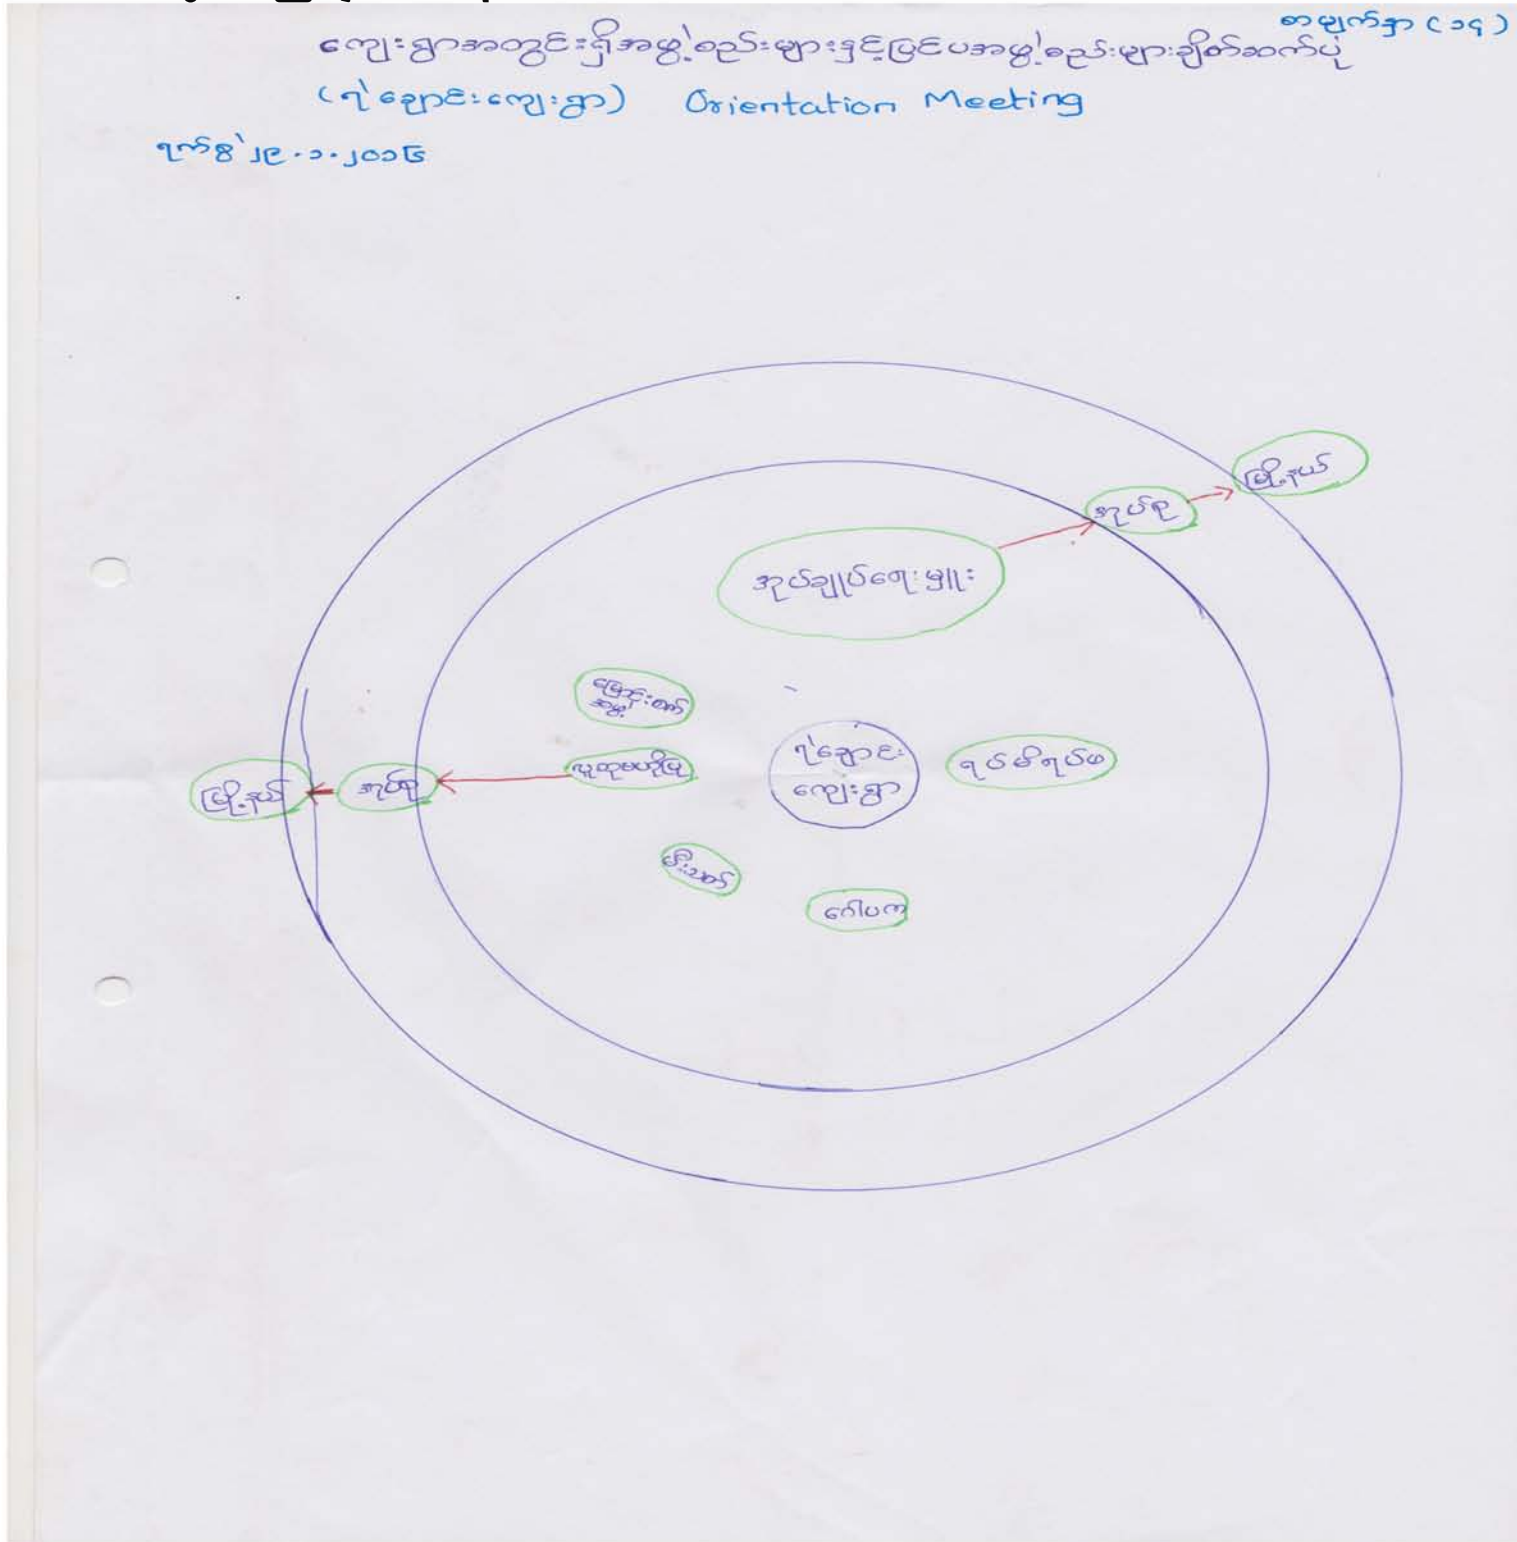 စာမျက်နှာ (၁၄)
ကျေးရွာအတွင်းရှိအဖွဲ့စည်းများနှင့်ပြင်ပအဖွဲ့စည်းများချိတ်ဆက်ပုံ
(ရဲချောင်းကျေးရွာ) Orientation Meeting
ရက်စွဲ ၂၉.၁.၂၀၁၆
မြို့နယ်
အုပ်စု
အုပ်ချုပ်ရေးမှူး
အဖွဲ့
ရဲချောင်း
ကျေးရွာ
ရပ်မိရပ်ဖ
အုပ်စု
မြို့နယ်
မီးသတ်
ဂေါပက